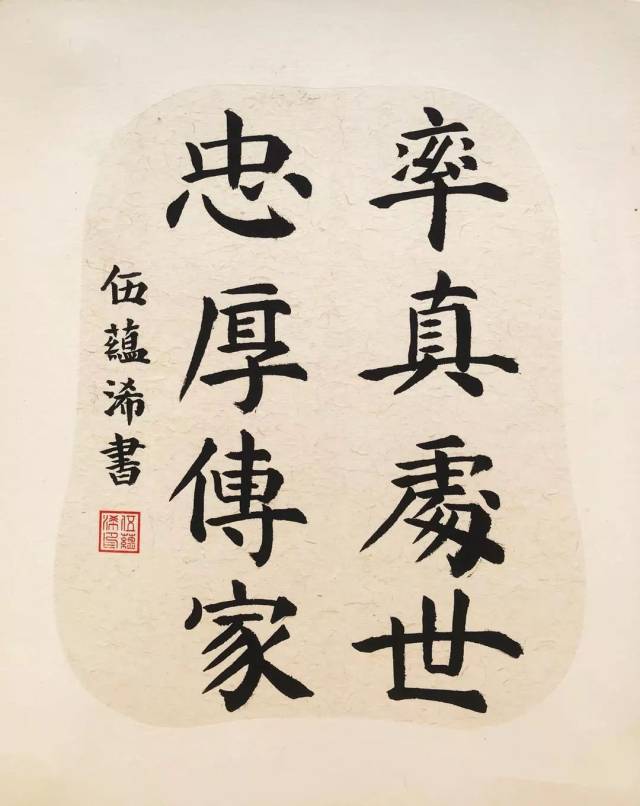 率真處世
忠厚傳家
伍蘊浠書
伍蘊浠印